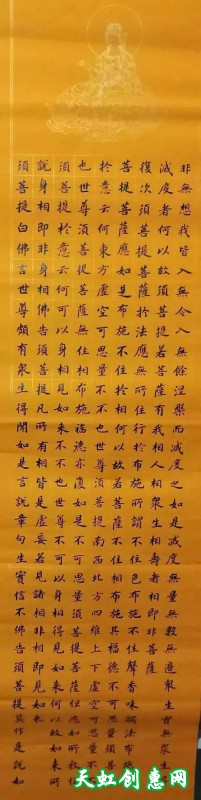 非無想我皆入無令入無餘涅槃而滅度之如是滅度無量無數無邊眾生實無眾生得
滅度者何以故須菩提若菩薩有我相人相眾生相壽者相即非菩薩
復次須菩提菩薩於法應無所住行於布施所謂不住色布施不住聲香味觸法布施須
菩提菩薩應如是布施不住於相何以故若菩薩不住相布施其福德不可思量須菩提
於意云何東方虛空可思量不不也世尊須菩提南西北方四維上下虛空可思量不不
也世尊須菩提菩薩無住相布施福德亦復如是不可思量須菩提菩薩但應如所教住
須菩提於意云何可以身相見如來不不也世尊不可以身相得見如來何以故如來所
說身相即非身相佛告須菩提凡所有相皆是虛妄若見諸相非相即見如來
須菩提白佛言世尊頗有眾生得聞如是言說章句生實信不佛告須菩提莫作是說如
天虹创惠网